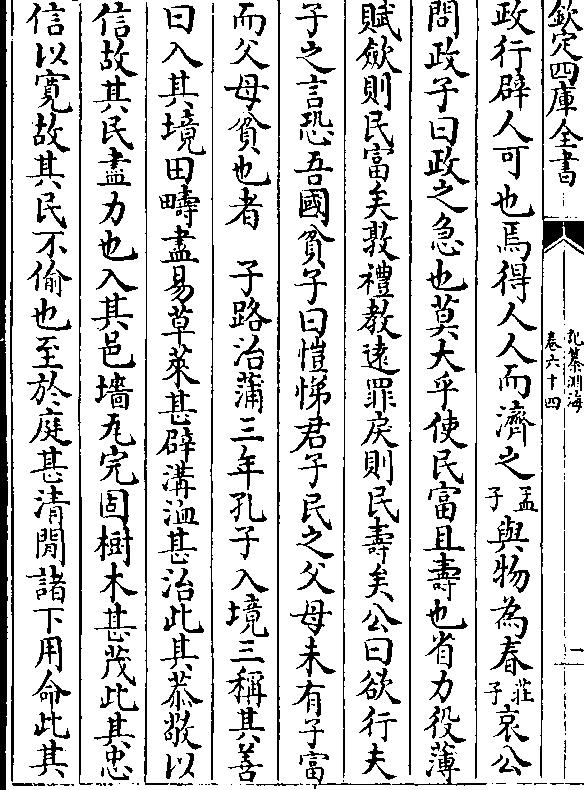 欽定四庫全書
記纂淵海
卷六十四
二
政行辟人可也焉得人人而濟之孟子與物為春莊子哀公
問政子曰政之急也莫大乎使民富且壽也省力役薄
賦斂則民富矣敦禮教遠罪戾則民壽矣公曰欲行夫
子之言恐吾國貧子曰愷悌君子民之父母未有子富
而父母貧也者 子路治蒲三年孔子入境三稱其善
曰入其境田疇盡易草萊甚辟溝洫甚治此其恭敬以
信故其民盡力也入其邑墻瓦完固樹木甚茂此其忠
信以寛故其民不偷也至於庭甚清閒諸下用命此其